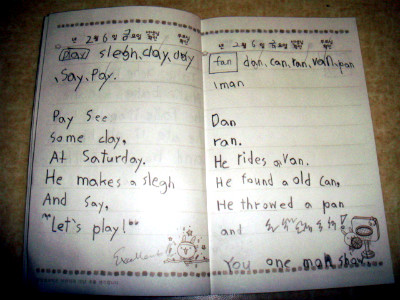 년 2월 6일 금요일
slegh, clay, day
, Say, Pay.
Pay See
some clay,
At Saturday.
He makes a slegh
And say,
"Let's play!"
Excellent
년 2월 6일 금요일
fan dan, can, ran, van, pan
man
Dan
ran.
He rides a van.
He found a old can,
He throwed a pan
and
You one man show.